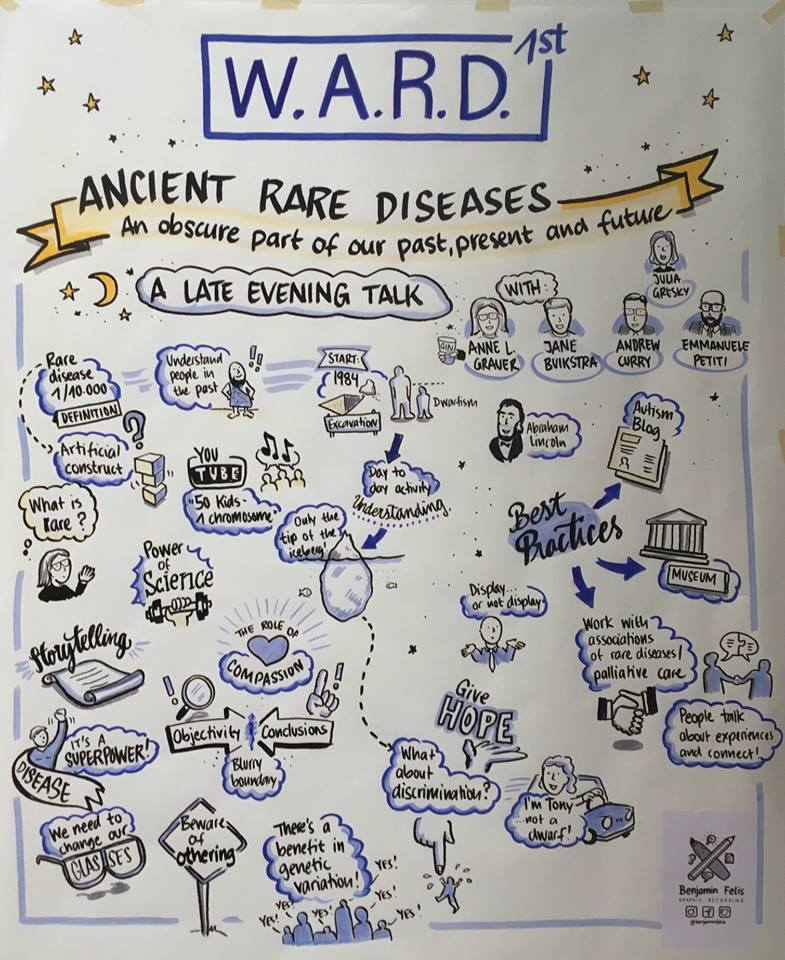 W.A.R.D. 1st
ANCIENT RARE DISEASES
An obscure part of our past, present and future
A LATE EVENING TALK
WITH:
JULIA
GRESKY
GIN
ANNE L.
GRAUER
JANE
BUIKSTRA
ANDREW
CURRY
EMMANUELE
PETITI
Rare
disease
1/10.000
DEFINITION
?
Artificial
construct
Understand
people in
the past
!!
START:
1984
Excavation
Dwarfism
Abraham
Lincoln
Autism
Blog
YOU
TUBE
"50 Kids-
1 chromosome"
Day to
day activity
Understanding
What is
rare?
Only the
tip of the
iceberg!
Best
Practices
MUSEUM
Power
of
Science
Display...
or not display
Work with
associations
of rare diseases/
palliative care
Storytelling
THE ROLE OF
COMPASSION
People talk
about experiences
and connect!
!
!
Objectivity
Conclusions
Blurry
boundary
Give
HOPE
IT'S A
SUPERPOWER!
DISEASE
What
about
discrimination?
I'm Tony
...not a
dwarf!
We need to
change our
GLASSES
Beware
of
othering
There's a
benefit in
genetic
variation!
YES!
YES!
YES!
YES!
YES!
YES!
Benjamin Felis
GRAPHIC RECORDING
@benjaminfelis